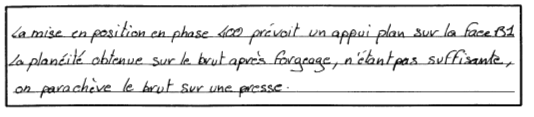 La mise en position en phase 400 prévoit un appui plan sur la face B1
La planéité obtenue sur le brut après forgeage, n'étant pas suffisante,
on parachève le brut sur une presse.